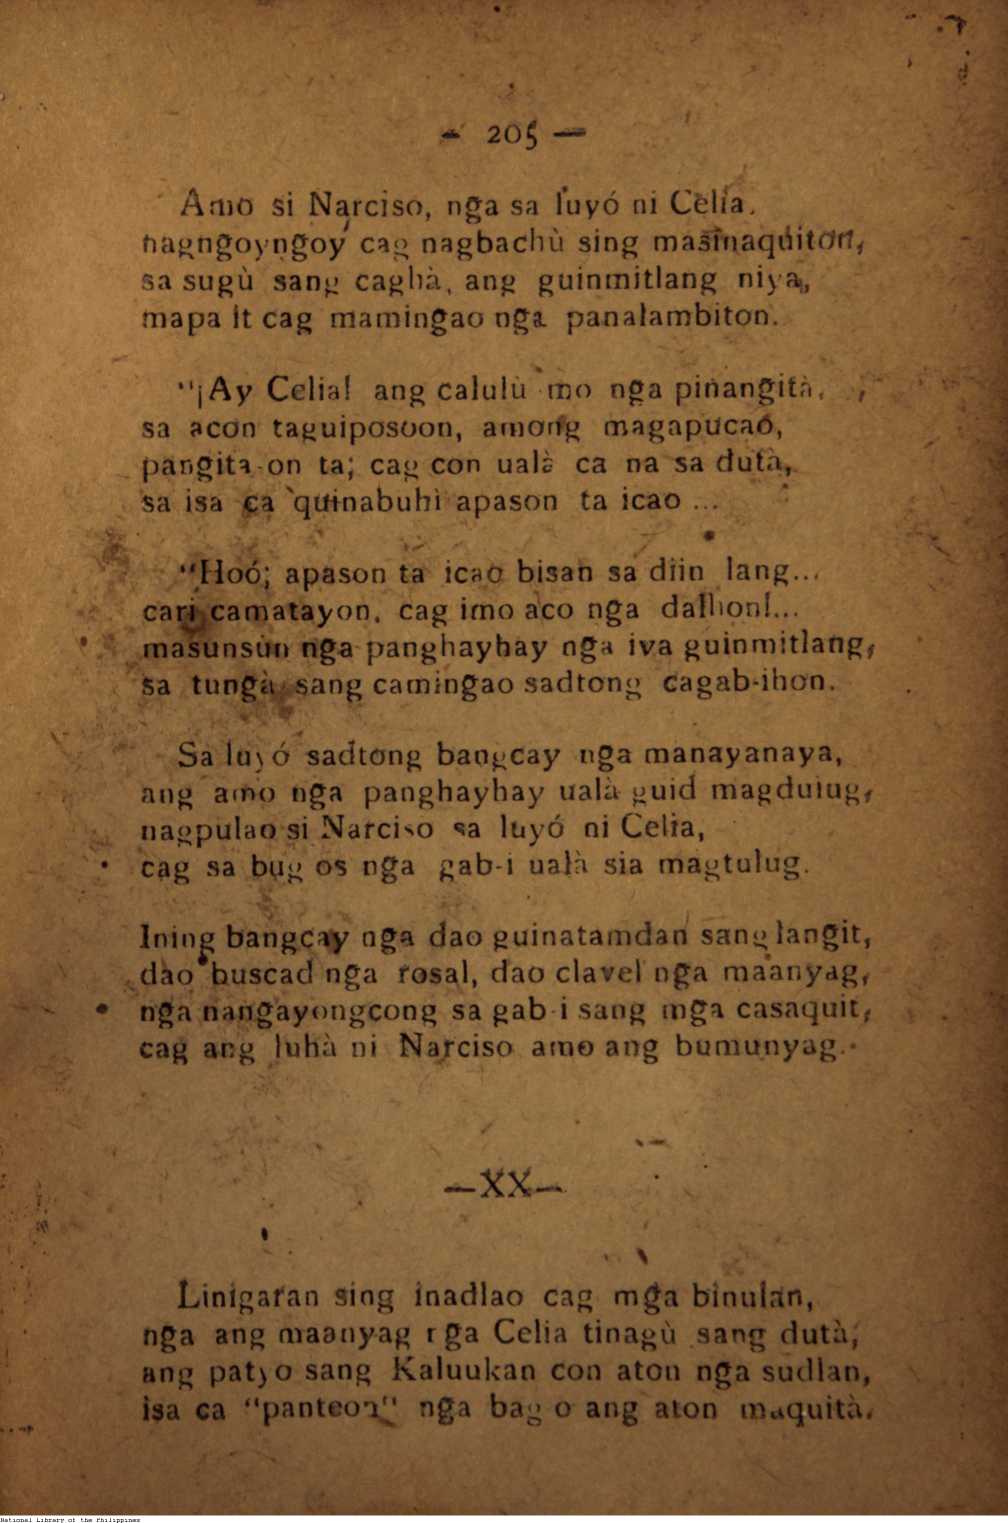 — 205 —
Amo si Narciso, nga sa luyó ni Celia.
nagngoyngoy cag nagbachù sing masinaquiton,
sa sugù sang caghà, ang guinmitlang niya,
mapa it cag mamingao nga panalambiton.
"¡Ay Celia! ang calulù mo nga pinangità,
sa acon taguiposoon, among magapucao,
pangita-on ta; cag con ualà ca na sa dutà,
sa isa ca quinabuhì apason ta icao ...
"Hoó; apason ta icao bisan sa diin lang...
cari camatayon, cag imo aco nga dalhon!...
masunsun nga panghayhay nga iya guinmitlang,
sa tungà sang camingao sadtong cagab-ihon.
Sa luyó sadtong bangcay nga manayanaya,
ang amo nga panghayhay ualà guid magdulug,
nagpulao si Narciso sa luyó ni Celia,
cag sa bug os nga gab-i ualà sia magtulug.
Ining bangcay nga dao guinatamdan sang langit,
dao buscad nga rosal, dao clavel nga maanyag,
nga nangayongcong sa gab-i sang mga casaquit,
cag ang luhà ni Narciso amo ang bumunyag.
—XX—
Linigaran sing inadlao cag mga binulan,
nga ang maanyag nga Celia tinagù sang dutà,
ang patyo sang Kaluukan con aton nga sudlan,
isa ca "panteon" nga bag o ang aton maquità.
National Library of the Philippines